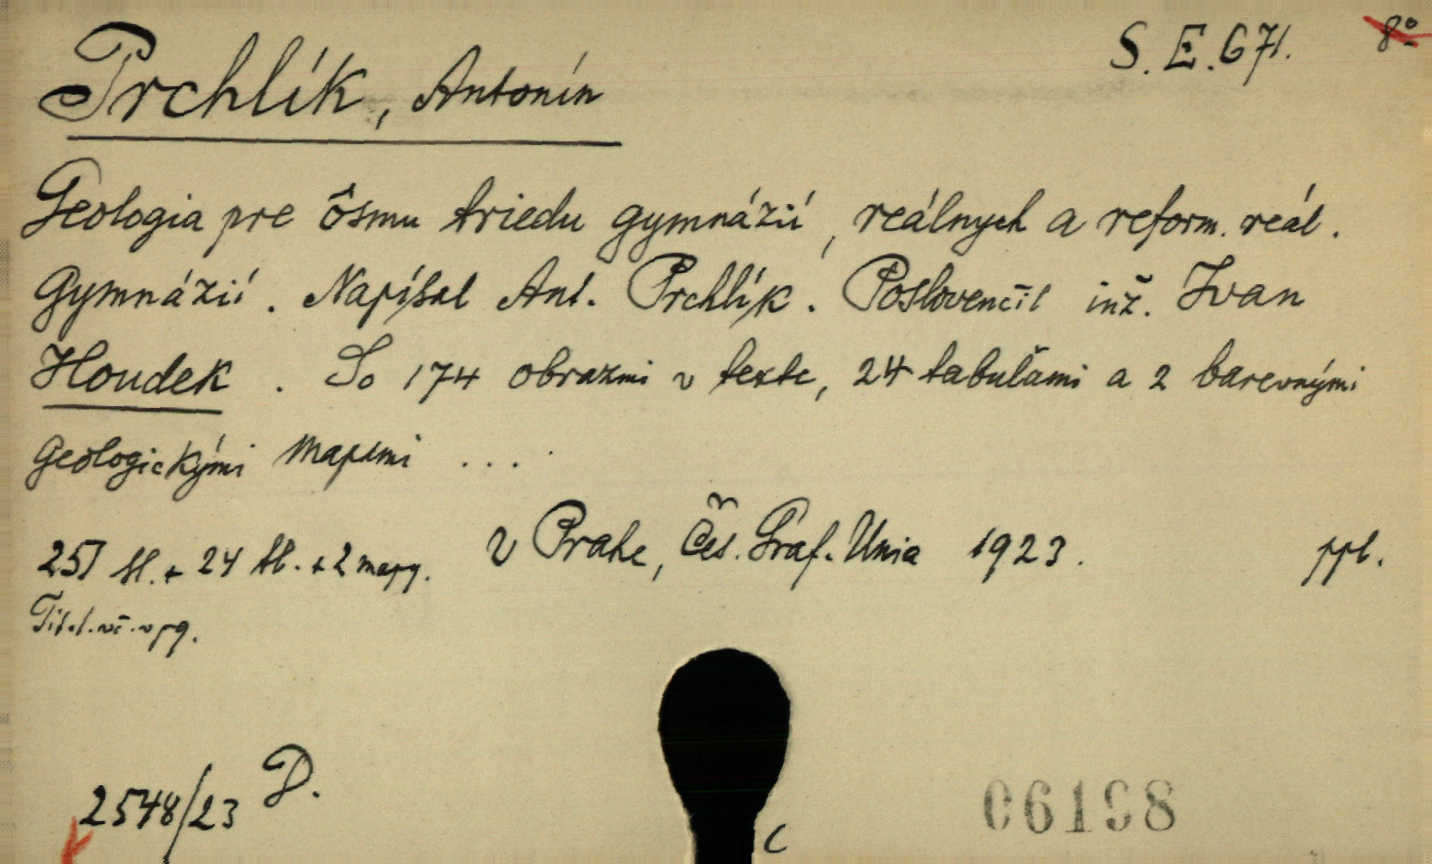 S. E. 671. 8°
Prchlík, Antonín
Geologia pre ôsmu triedu gymnázií, reálnych a reform. reál.
gymnázií. Napísal Ant. Prchlík. Poslovenčil inž. Ivan
Houdek. So 174 obrazmi v texte, 24 tabuľami a 2 barevnými
geologickými mapami ...
V Prahe, Čes. Graf. Unia 1923. ppl.
+ 24 + 2 mapy.
2548/23 D.
06198
C